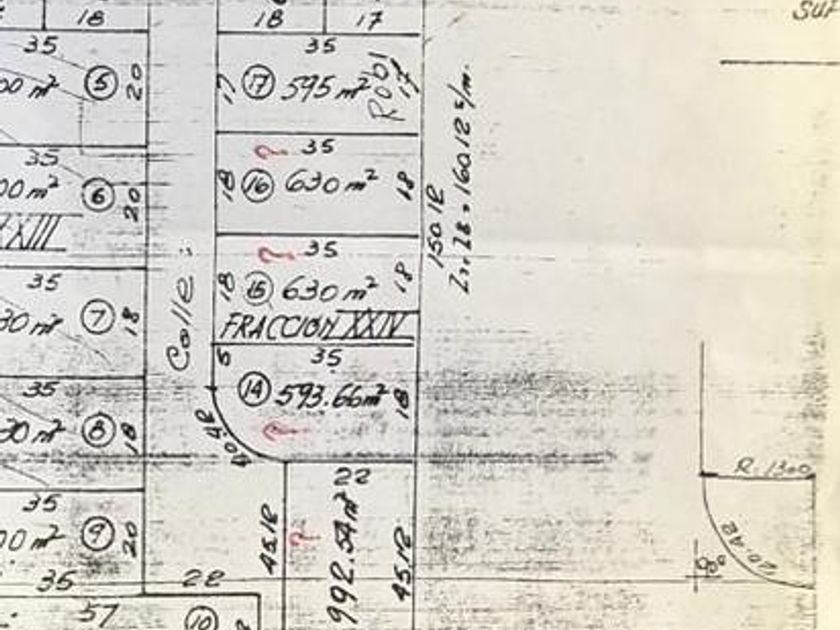 18
18
17
SUP
35
5
20
00 m²
35
17
595 m²
17
Robl
17
35
6
20
00 m²
XXIII
? 35
18
16
630 m²
18
? 35
18
15
630 m²
18
FRACCION XXIV
150.12
160.12 s/m.
Calle:
35
7
18
30 m²
35
5
14
593.66 m²
18
20.42
?
35
8
18
30 m²
22
45.12
?
992.54 m²
45.12
35
9
20
00 m²
35
22
57
10
R. 1300
20.42
90°